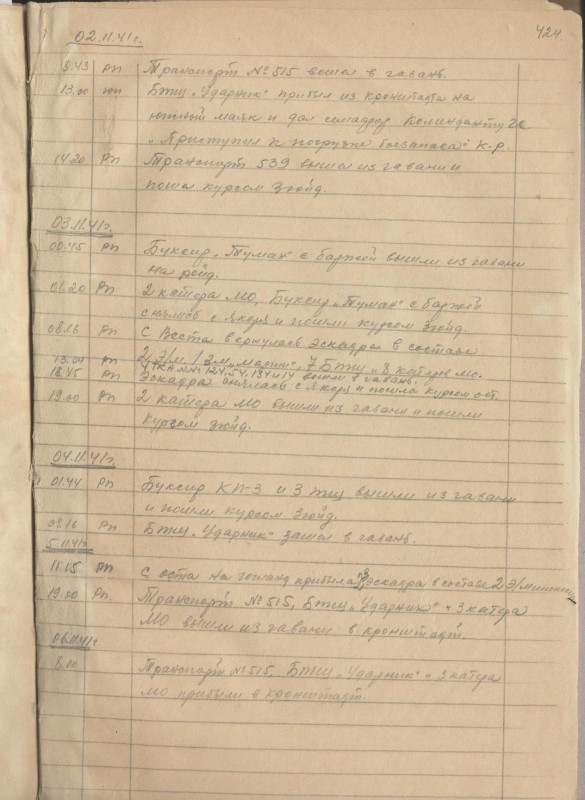 424
02.11.41г.
5.43 РП Транспорт № 515 вошел в гавань.
13.00 РП БТЩ „Ударник" прибыл из Кронштадта на
южный маяк и дал семафор Коменданту
„Приступил к погрузке боезапаса" К-р.
14.20 РП Транспорт 539 вышел из гавани и
пошел курсом Зюйд.
03.11.41г.
00.45 РП Буксир „Туман" с баржей вышли из гавани
на рейд.
01.20 РП 2 катера МО, Буксир „Туман" с баржей
снялись с якоря и пошли курсом Зюйд.
08.16 РП С Веста вернулась эскадра в составе
2 Э/М, 1 ЗМ „Марти", 7 БТЩ и 8 катеров МО.
13.04 РП ТКА №№ 124, 54, 134 и 14 вошли в гавань.
18.45 РП Эскадра снялась с якоря и пошла курсом ост.
19.00 РП 2 катера МО вышли из гавани и пошли
курсом Зюйд.
04.11.41г.
01.44 РП Буксир КП-3 и 3 ТЩ вышли из гавани
и пошли курсом Зюйд.
08.16 РП БТЩ „Ударник" зашел в гавань.
5.11.41г.
11.15 РП С оста на гогланд прибыла эскадра в составе 2 Э/миноносц
19.00 РП. Транспорт № 515, БТЩ „Ударник" и 3 катера
МО вышли из гавани в Кронштадт.
06.11.41г.
8.00 Транспорт № 515, БТЩ „Ударник" и 3 катера
МО прибыли в Кронштадт.